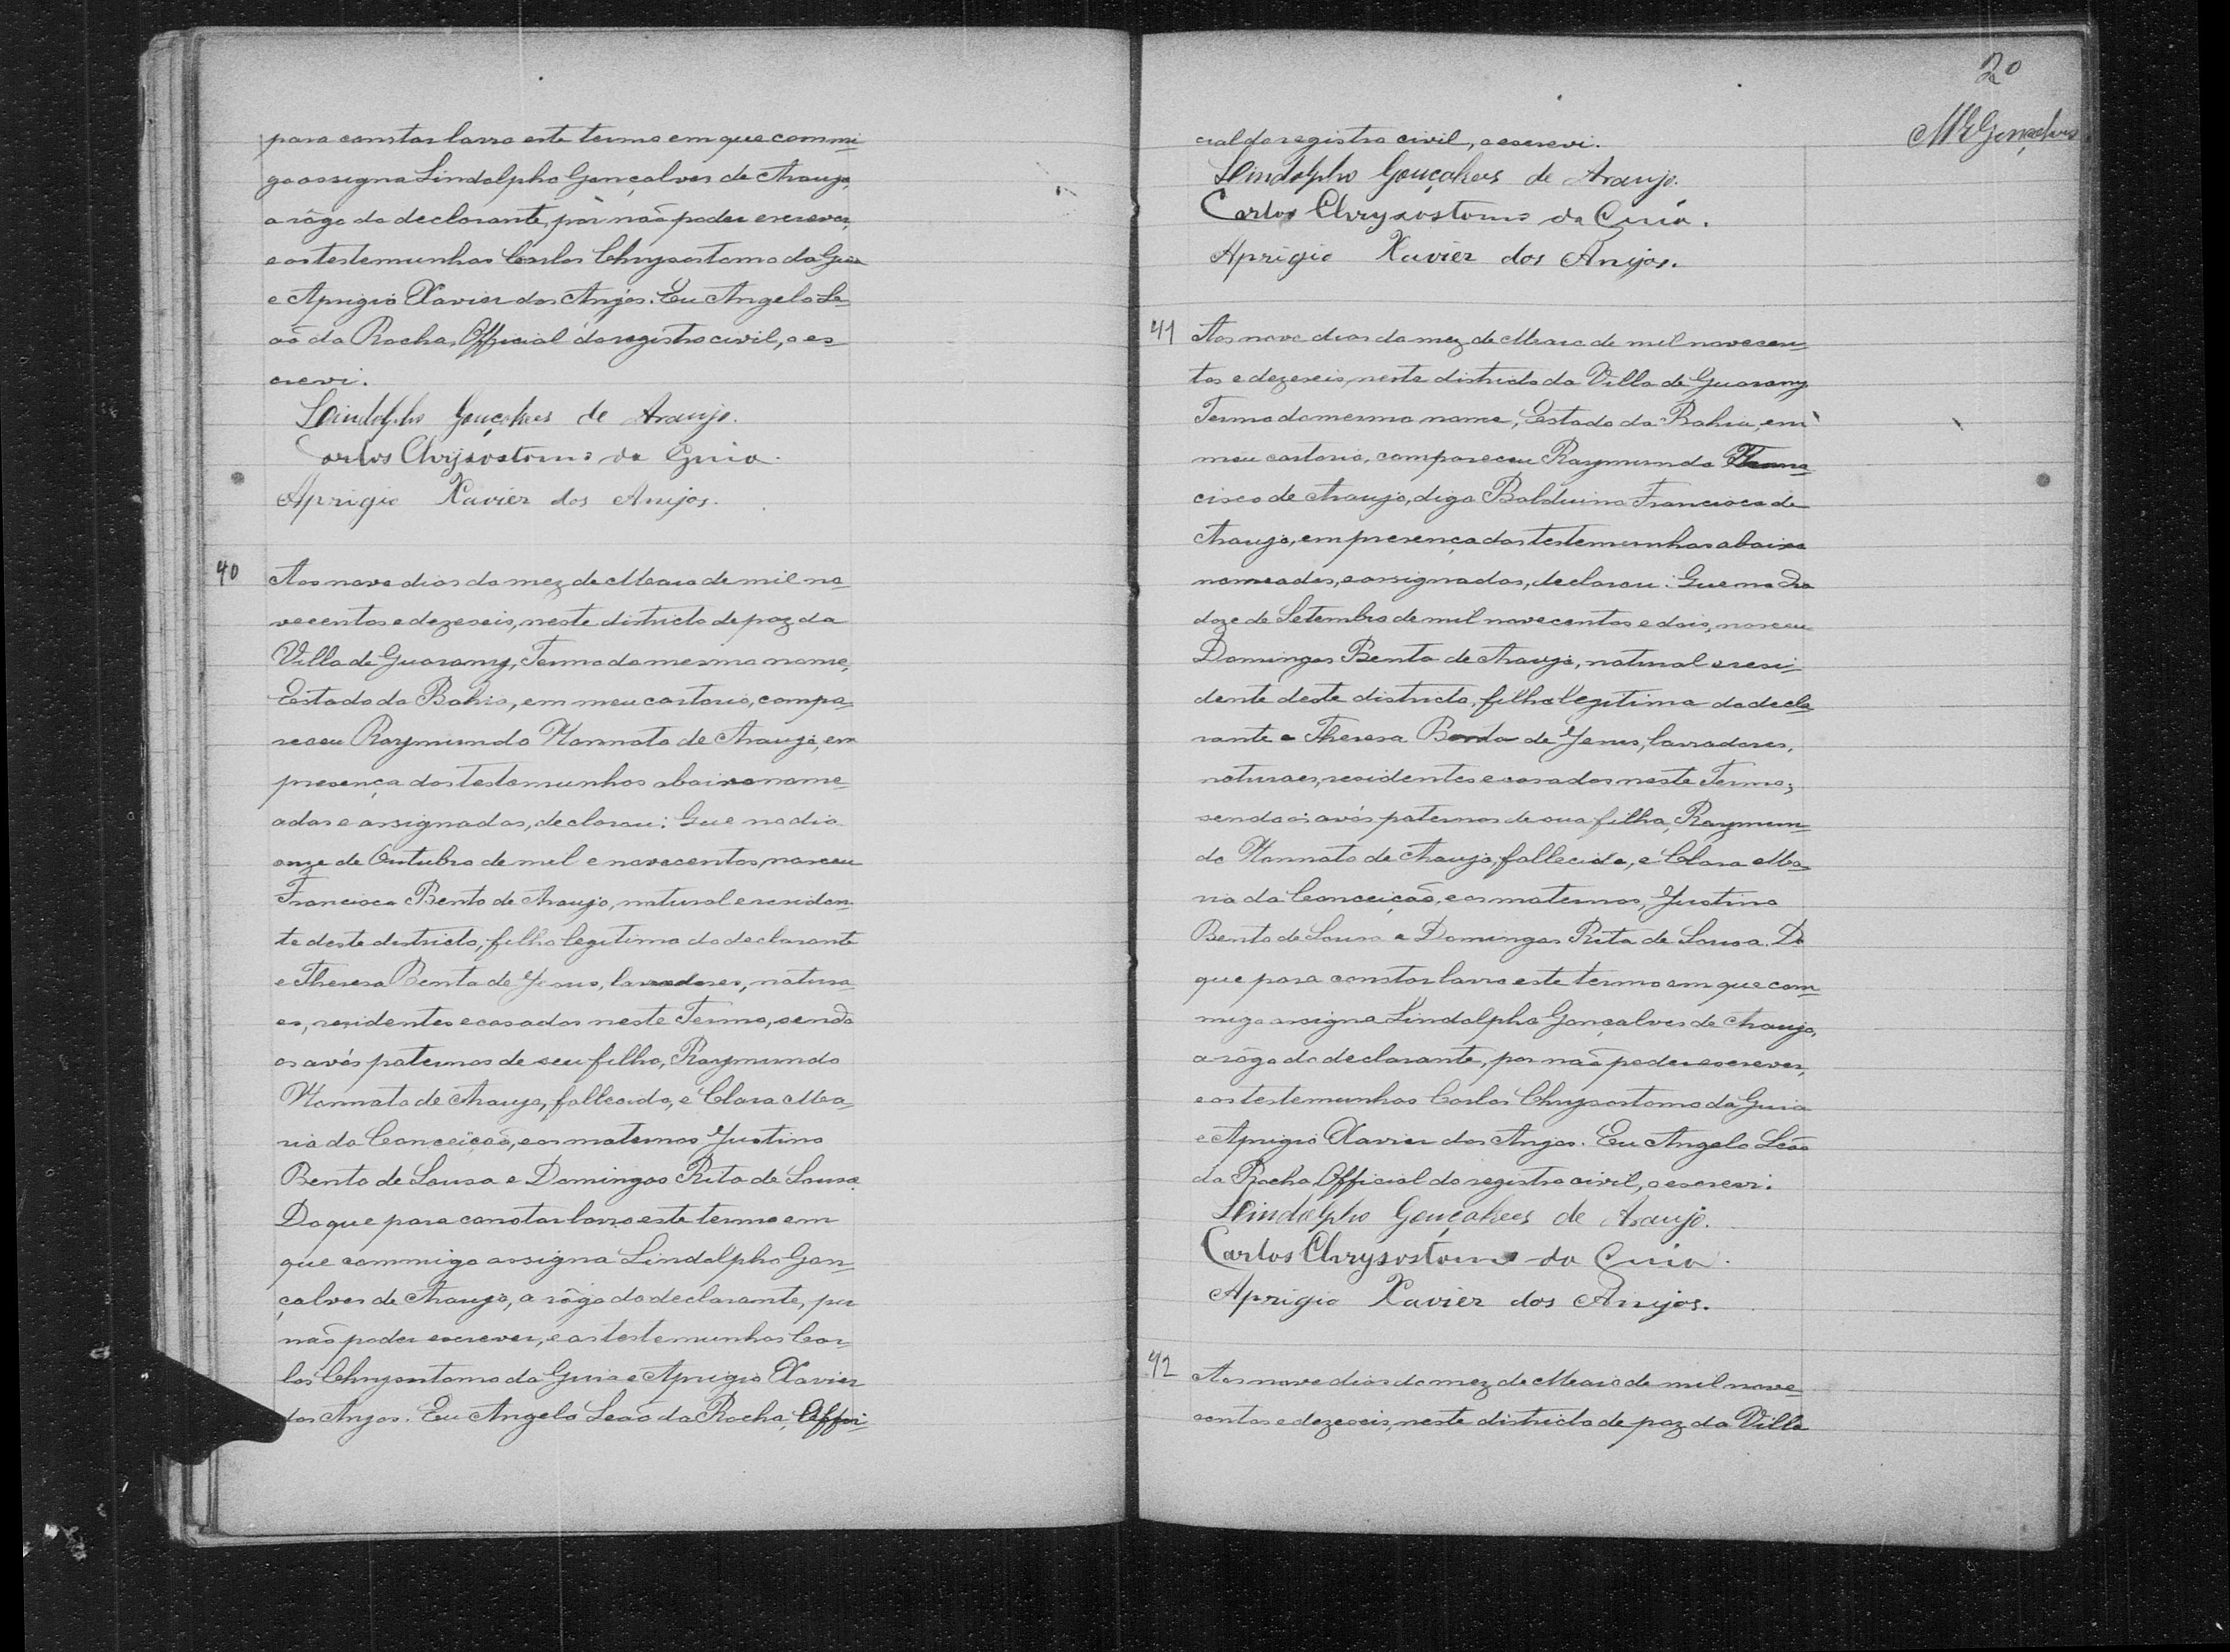 para constar lavro este termo em que commi-
go assigna Lindolpho Gonçalves de Araujo,
a rôgo do declarante, por não poder escrever,
e as testemunhas Carlos Chrysostomo da Guia
e Aprigio Xavier dos Anjos. Eu Angelo Le-
ão da Rocha, Official do registro civil, o es-
crevi.
Lindolpho Gonçalves de Araujo.
Carlos Chrysostomo da Guia.
Aprigio Xavier dos Anijos.
40 Aos nove dias do mez de Maio de mil no-
vecentos e dezeseis, neste districto de paz da
Villa de Guarany, Termo do mesmo nome,
Estado da Bahia, em meu cartorio, compa-
receu Raymundo Nonnato de Araujo, em
presença das testemunhas abaixo nome-
adas e assignadas, declarou: Que no dia
onze de Outubro de mil e novecentos, nasceu
Francisco Bento de Araujo, natural e residen-
te deste districto, filho legitimo do declarante
e Theresa Benta de Jesus, lavradores, natura-
es, residentes e casados neste Termo, sendo
os avós paternos de seu filho, Raymundo
Nonnato de Araujo, fallecido, e Clara Ma-
ria da Conceição, e os maternos Justino
Bento de Sousa e Domingas Rita de Sousa.
Do que para constar lavro este termo em
que commigo assigna Lindolpho Gon-
çalves de Araujo, a rôgo do declarante, por
não poder escrever, e as testemunhas Car-
los Chrysostomo da Guia e Aprigio Xavier
dos Anjos. Eu Angelo Leão da Rocha, Offi-
20
MRGonçalves
cial do registro civil, o escrevi.
Lindolpho Gonçalves de Araujo.
Carlos Chrysostomo da Guia.
Aprigio Xavier dos Anijos.
41 Aos nove dias do mez de Maio de mil novecen-
tos e dezeseis, neste districto da Villa de Guarany
Termo do mesmo nome, Estado da Bahia, em
meu cartorio, compareceu Raymundo
cisco de Araujo, digo Balduino Francisco de
Araujo, em presença das testemunhas abaixo
nomeadas, e assignadas, declarou: Que no dia
doze de Setembro de mil novecentos e dois, nasceu
Domingas Benta de Araujo, natural e resi-
dente deste districto, filha legitima do decla-
rante e Theresa Benta de Jesus, lavradores,
naturaes, residentes e casados neste Termo;
sendo os avós paternos de sua filha, Raymun-
do Nonnato de Araujo, fallecido, e Clara Ma-
ria da Conceição, e os maternos, Justino
Bento de Sousa e Domingas Rita de Sousa. Do
que para constar lavro este termo em que com-
migo assigna Lindolpho Gonçalves de Araujo,
a rôgo do declarante, por não poder escrever,
e as testemunhas Carlos Chrysostomo da Guia
e Aprigio Xavier dos Anjos. Eu Angelo Leão
da Rocha, Official do registro civil, o escrevi.
Lindolpho Gonçalves de Araujo.
Carlos Chrysostomo da Guia.
Aprigio Xavier dos Anijos.
42 Aos nove dias do mez de Maio de mil nove-
centos e dezeseis, neste districto de paz da Villa